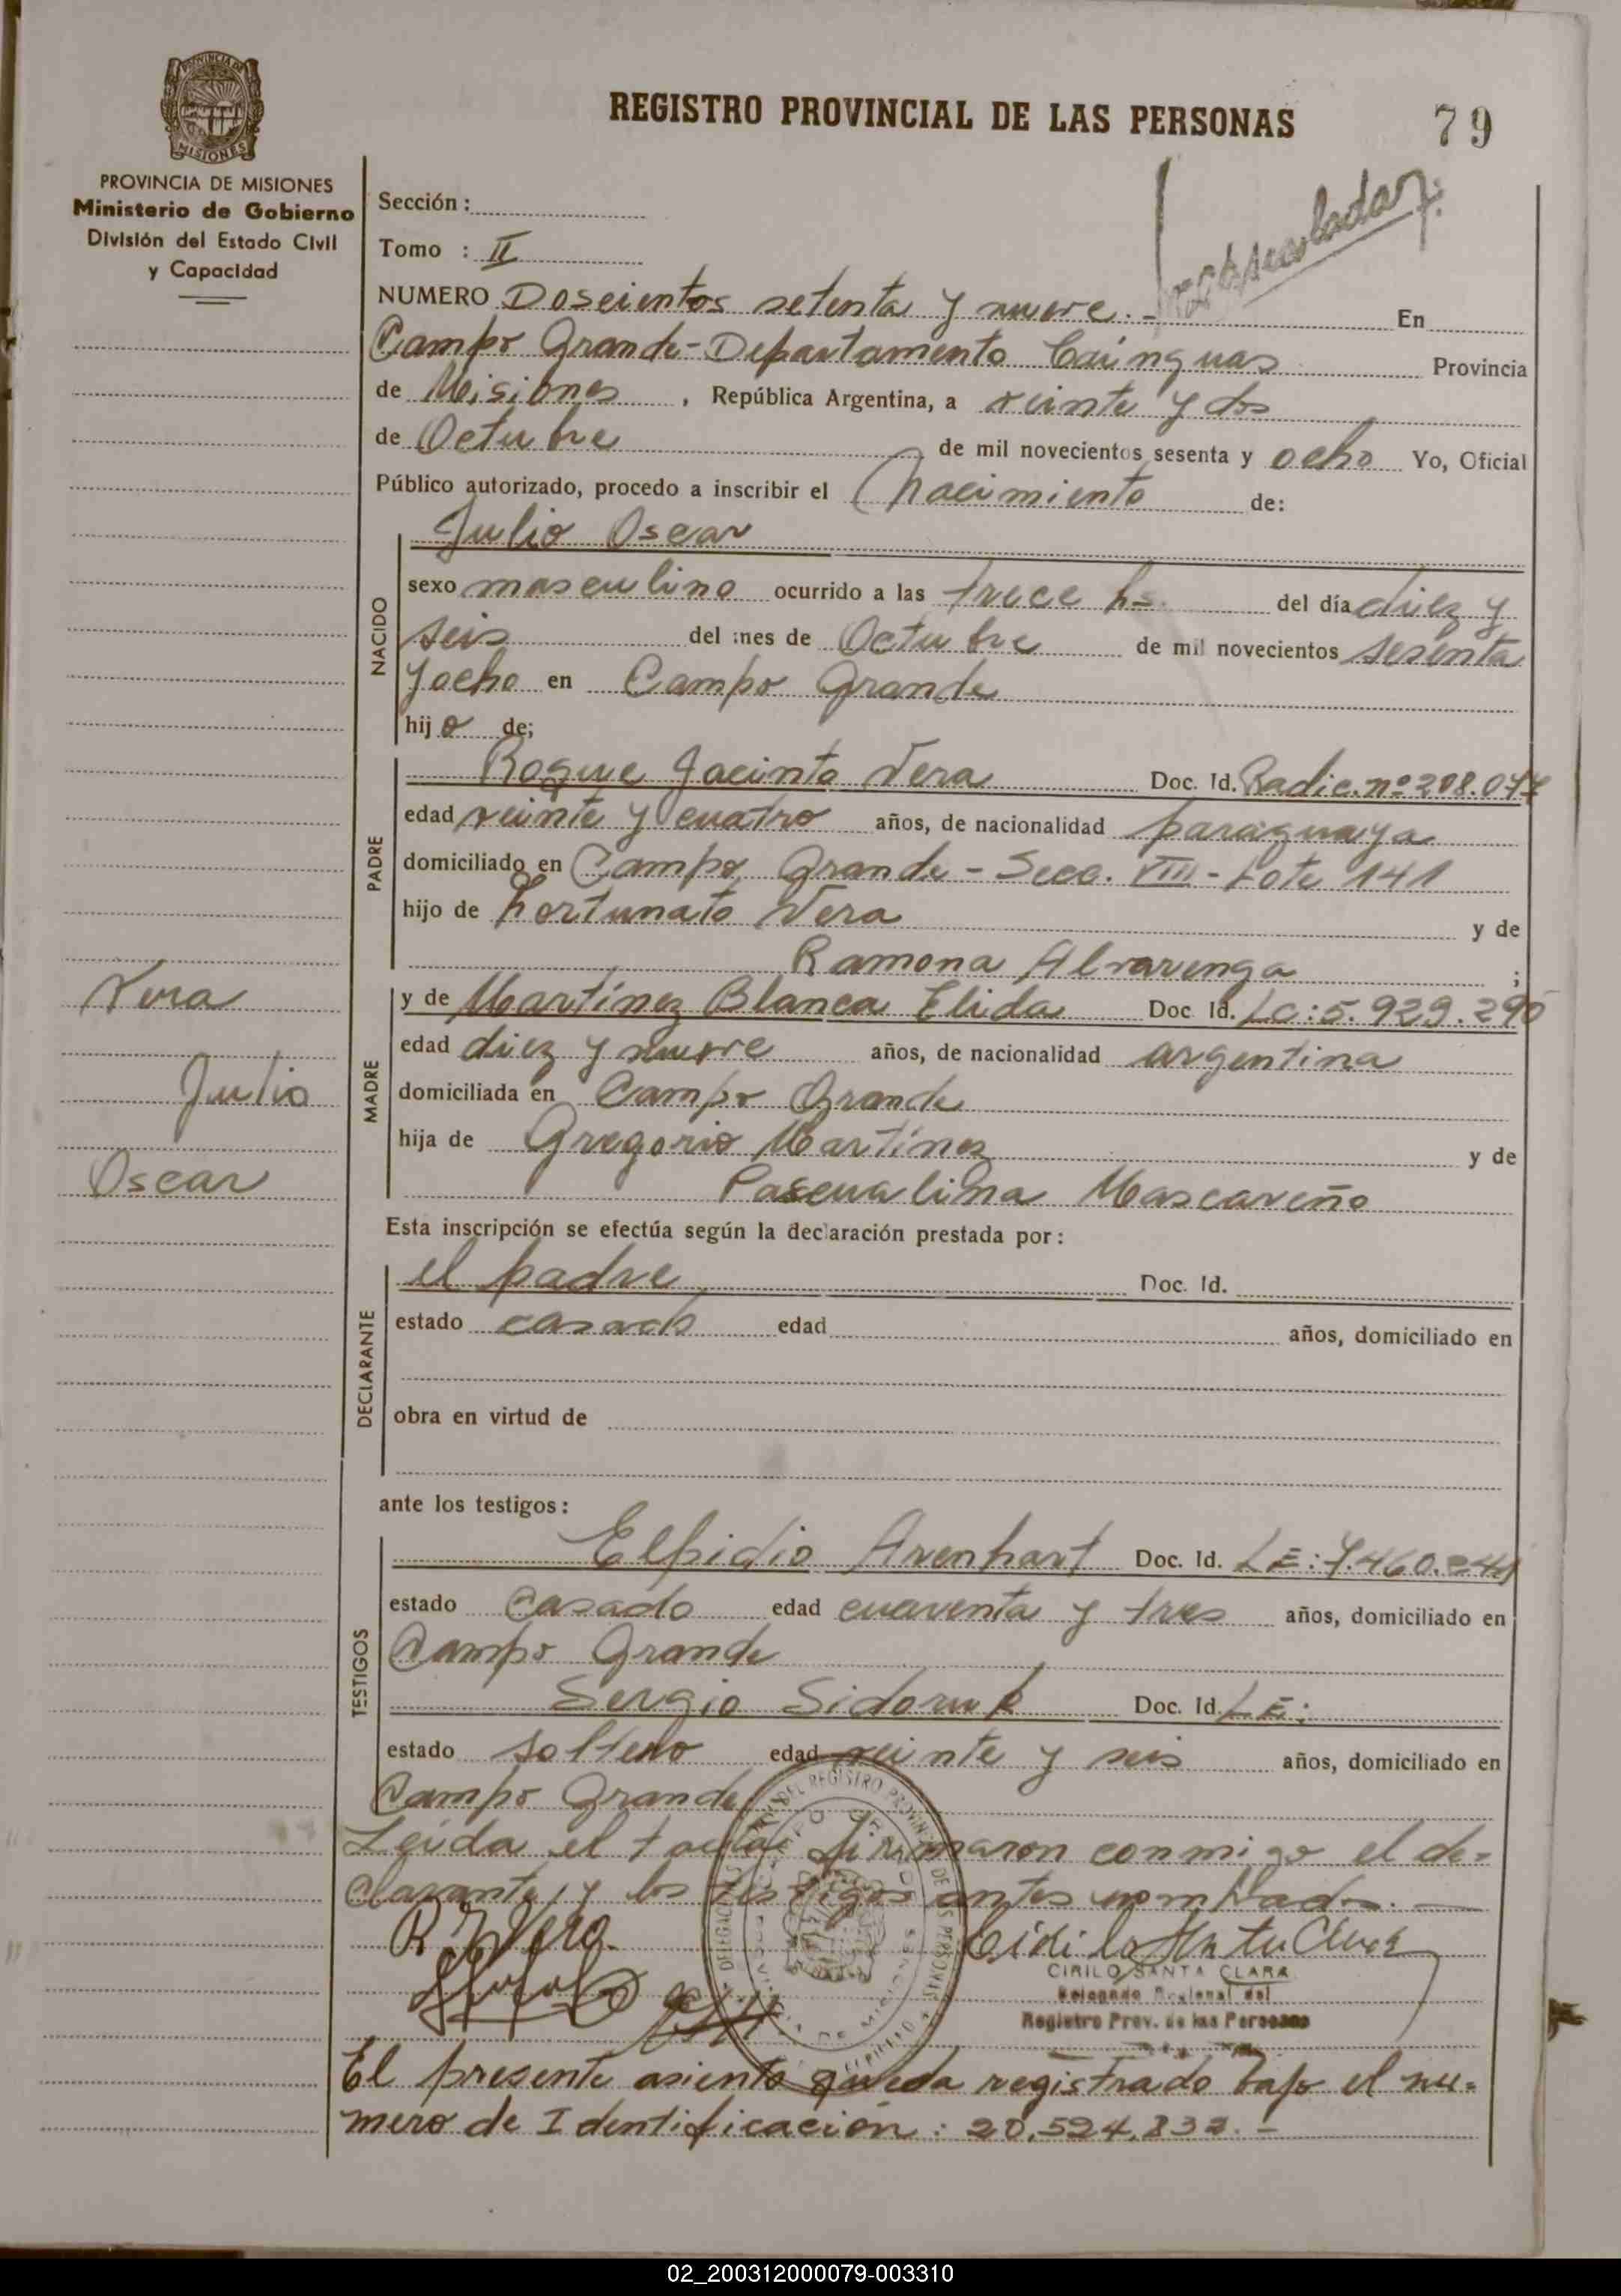 REGISTRO PROVINCIAL DE LAS PERSONAS
79
PROVINCIA DE MISIONES
MISIONES
PROVINCIA DE MISIONES
Ministerio de Gobierno
División del Estado Civil
y Capacidad
Sección :
Tomo : II
NUMERO Doscientos setenta y nueve.- En
Campo Grande - Departamento Cainguas Provincia
de Misiones, República Argentina, a veinte y dos
de Octubre de mil novecientos sesenta y ocho Yo, Oficial
Público autorizado, procedo a inscribir el Nacimiento de:
NACIDO
Julio Oscar
sexo masculino ocurrido a las trece hs. del día diez y
seis del mes de Octubre de mil novecientos sesenta
y ocho en Campo Grande
hijo de;
PADRE
Roque Jacinto Vera Doc. Id. Radic. nº 208.077
edad veinte y cuatro años, de nacionalidad paraguaya
domiciliado en Campo Grande - Secc. VIII - Lote 141
hijo de Fortunato Vera y de
Ramona Alvarenga ;
Vera
Julio
Oscar
MADRE
y de Martínez Blanca Elida Doc Id. LC: 5.929.290
edad diez y nueve años, de nacionalidad argentina
domiciliada en Campo Grande
hija de Gregorio Martínez y de
Pascualina Mascareño
Esta inscripción se efectúa según la declaración prestada por :
DECLARANTE
el padre Doc. Id.
estado casado edad años, domiciliado en
obra en virtud de
ante los testigos :
TESTIGOS
Elpidio Arenhart Doc. Id. LE: 7.460.
estado Casado edad cuarenta y tres años, domiciliado en
Campo Grande
Sergio Sidoruk Doc. Id. LE:
estado soltero edad veinte y seis años, domiciliado en
Campo Grande
Leida el firmaron conmigo el de-
clarante, y los testigos antes nombrados.
R J Vera
CIRILO SANTA CLARA
Delegado Regional del
Registro Prov. de las Personas
El presente asiento queda registrado bajo el nu-
mero de Identificación : 20.524.832.-
02_200312000079-003310